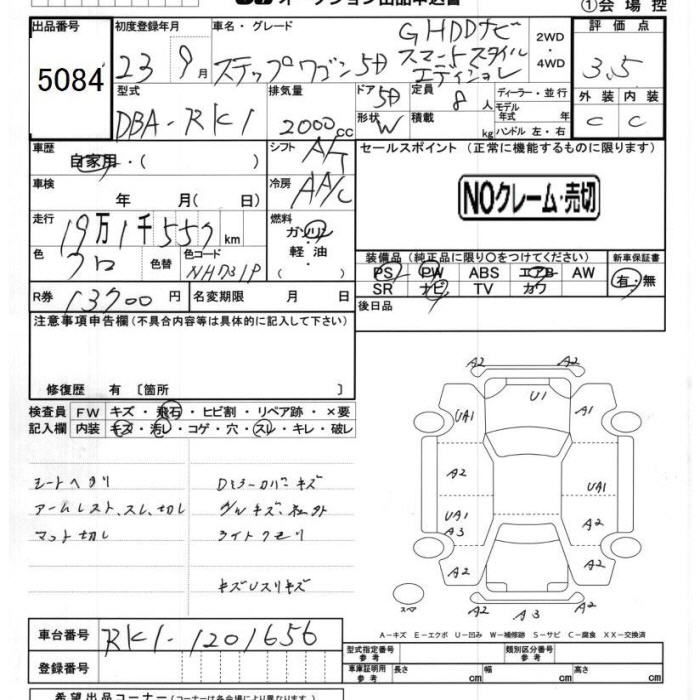 オークション出品申込書
①会場控
出品番号
5084
初度登録年月
23 9月
車名・グレード
ステップワゴン 5D
G HDDナビ
スマートスタイル
エディション
2WD
・
4WD
評価点
3.5
外装 内装
C C
型式
DBA-RK1
排気量
2000cc
ドア 5D
形状 W
定員 8人
積載 kg
ディーラー・並行
モデル
年式 年
ハンドル 左・右
車歴
自家用・( )
シフト A/T
冷房 AA/C
車検
年 月( 日)
走行
19万1千557km
燃料
ガソリン
軽・油
・( )
色
クロ
色替
色コード
NH731P
R券 13700円
名変期限 月 日
セールスポイント (正常に機能するものに限ります)
NOクレーム・売切
装備品 (純正品に限り○をつけてください)
PS PW ABS エアB AW
SR ナビ TV カワ
新車保証書
有・無
後日品
注意事項申告欄(不具合内容等は具体的に記入して下さい)
修復歴 有 〔箇所 〕
検査員
記入欄
FW キズ・飛石・ヒビ割・リペア跡・×要
内装 キズ・汚レ・コゲ・穴・スレ・キレ・破レ
シートヘタリ
アームレスト、スレ、切レ
マット切レ
Dミラーカバーキズ
ライトクモリ
キズUスリキズ
A2 A2
U1
UA1 A1
A2
UA1
UA1
A3
A2
A2 A2
A2 A3 A2
スペア
A-キズ E-エクボ U-凹み W-補修跡 S-サビ C-腐食 XX-交換済
車台番号 RK1-1201656
登録番号
型式指定番号
参考
類別区分番号
車庫証明用
参考
長さ cm 幅 cm 高さ cm
希望出品コーナー(コーナーは各会場により異なります)